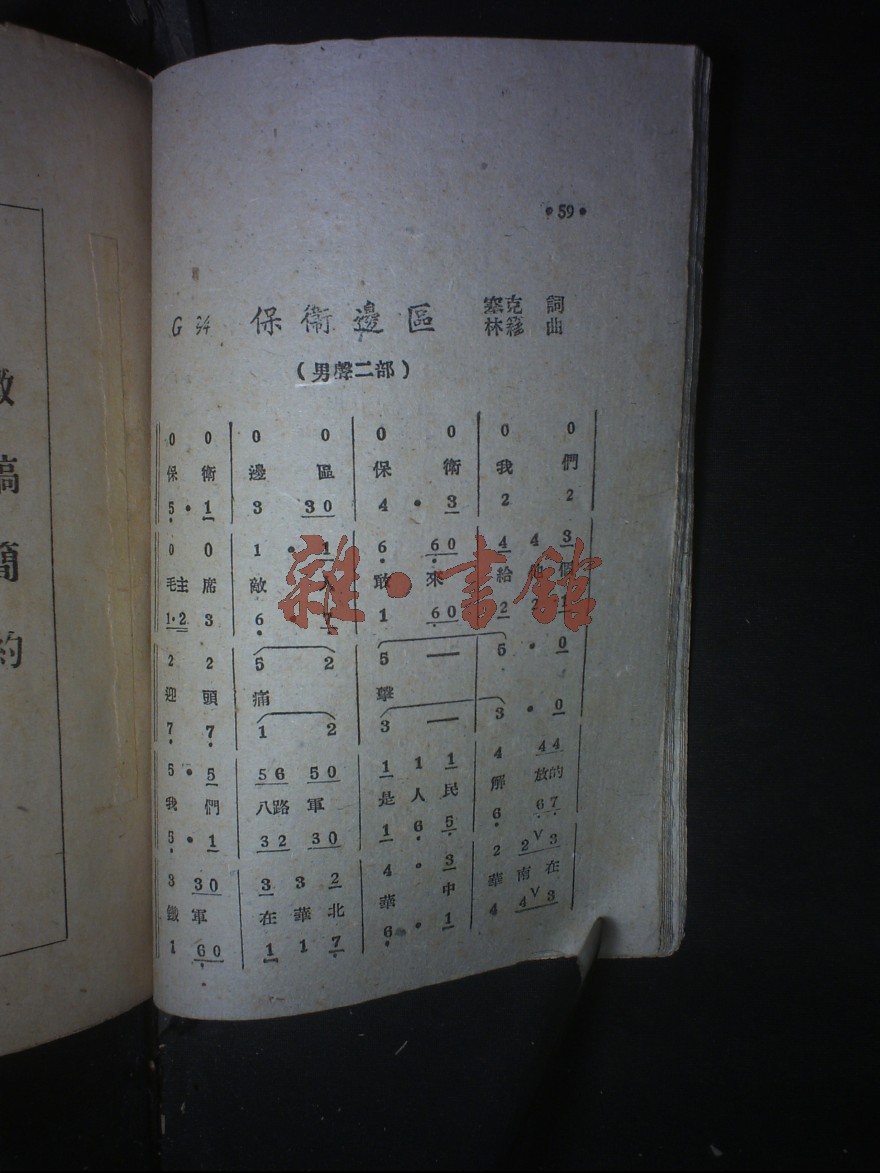 •59•
G 2/4 保衛邊區 塞克 詞
林䔥 曲
(男聲二部)
0 0 | 0 0 | 0 0 | 0 0
保 衛 邊 區 保 衛 我 們
5 • 1 | 3 30 | 4 • 3 | 2 2
0 0 | 1 • 1 | 6 60 | 4 4 3
毛主 席 敵 人 敢 來 給 他 個
1•2 3 | 6 • 7 | 1 60 | 2 1
2 2 | 5 2 | 5 — | 5 • 0
迎 頭 痛 擊
7 7 | 1 2 | 3 — | 3 • 0
5 • 5 | 56 50 | 1 1 1 | 4 44
我 們 八路 軍 是 人 民 解 放的
5 • 1 | 32 30 | 1 6 5 | 6 67
3 30 | 3 3 2 | 4 • 3 | 2 2V3
鐵 軍 在 華 北 華 中 華 南 在
1 60 | 1 1 7 | 6 • 1 | 4 4V3
雜•書館
稿
簡
約